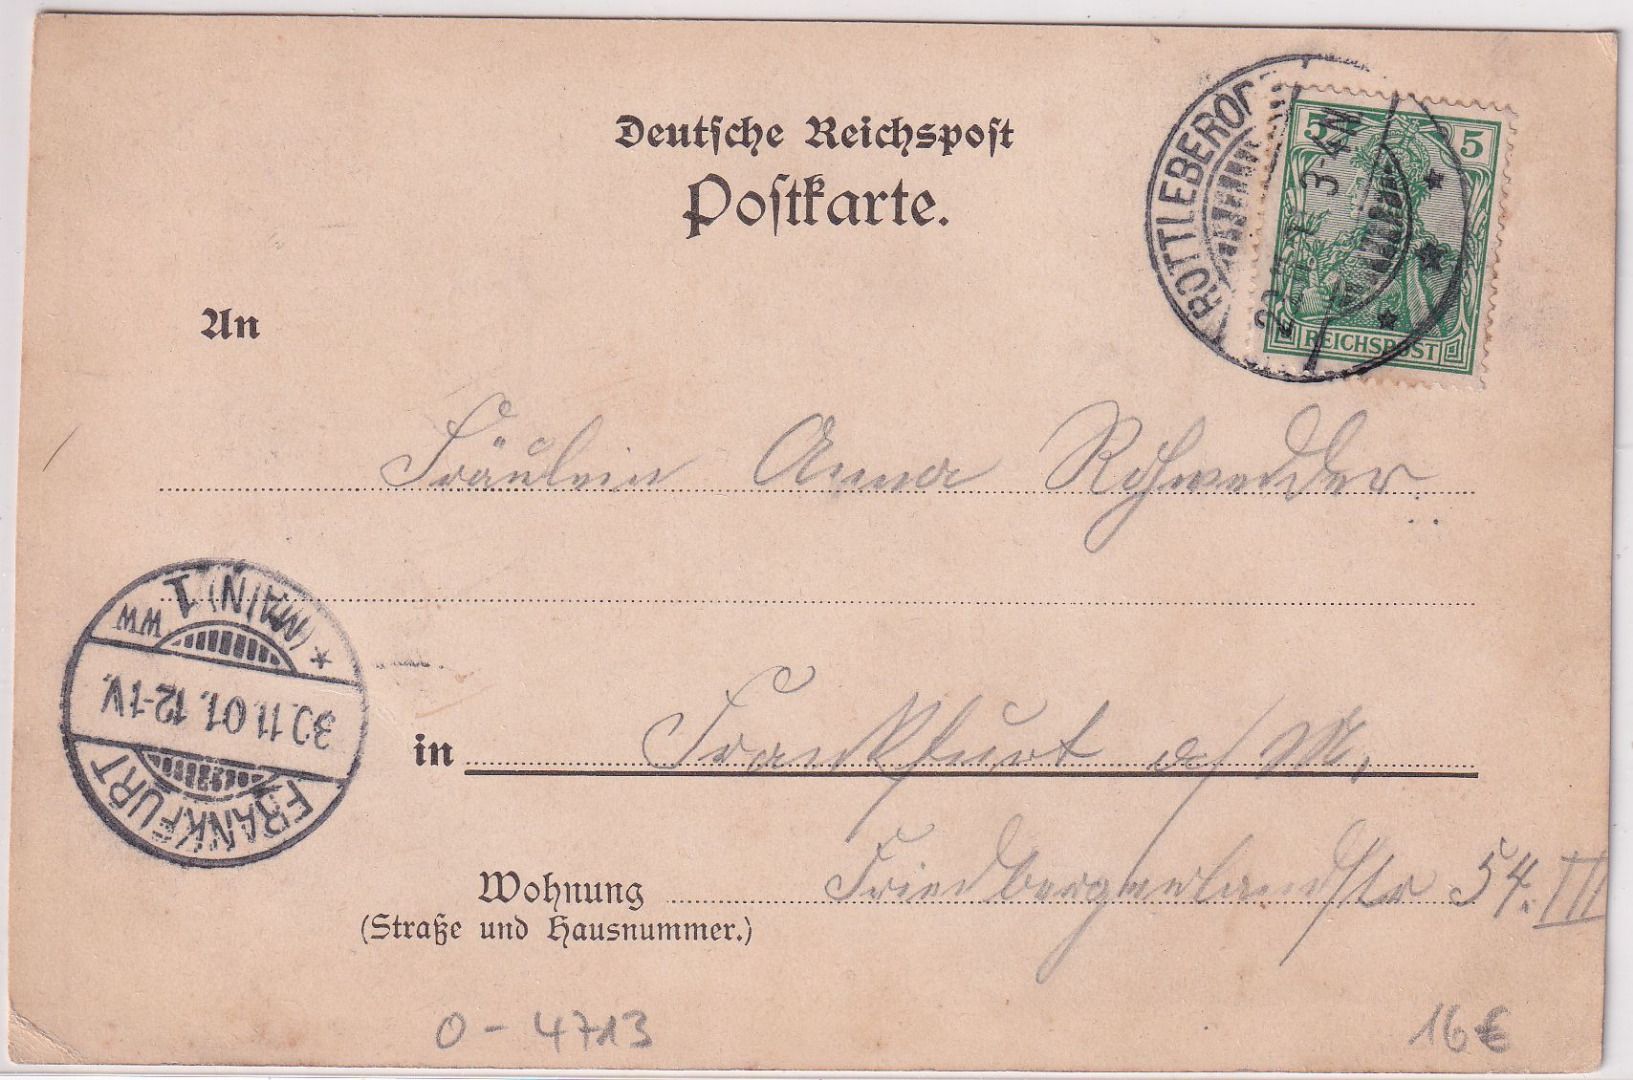 Deutsche Reichspost
Postkarte.
ROTTLEBERO
3-4N
5 5
REICHSPOST
An
Fräulein Anna Rohwedder
(MAIN) 1
WW
30.11.01. 12-1V.
FRANKFURT
in Frankfurt a/M.
Wohnung Friedbergerlandstr 54. III
(Straße und Hausnummer.)
O-4713
16€